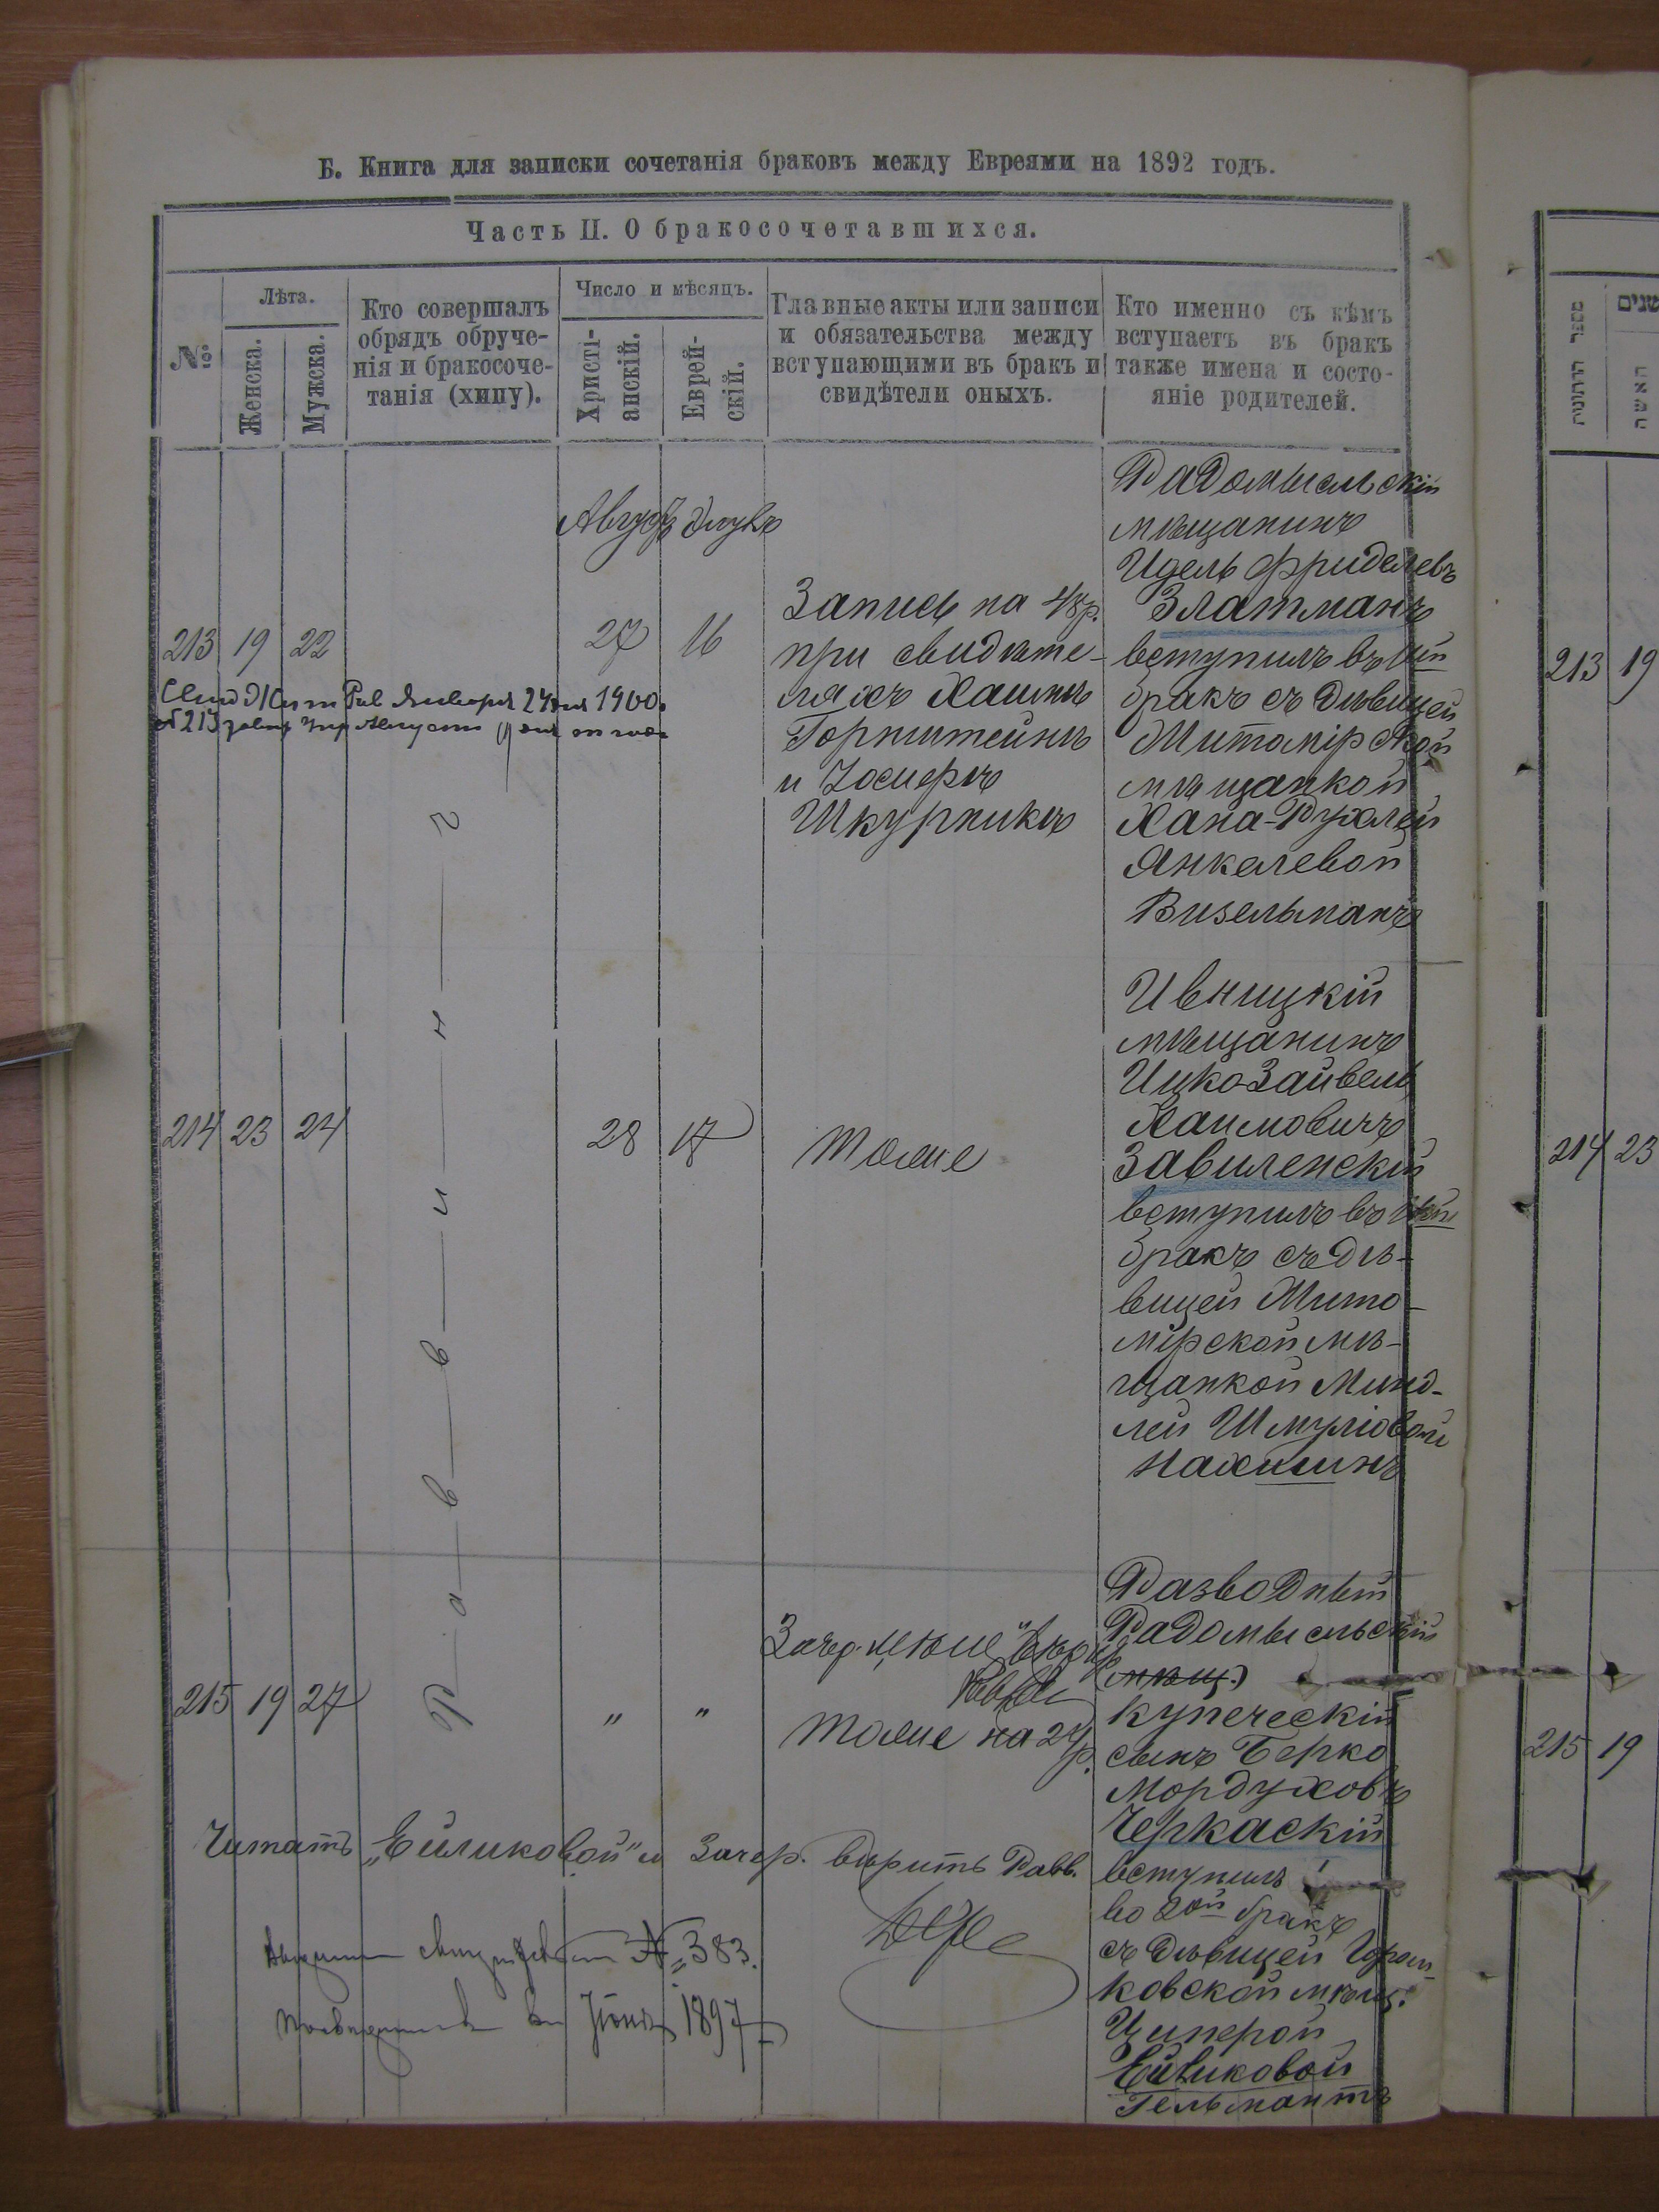 Б. Книга для записки сочетанія браковъ между Евреями на 1892 годъ.
Часть II. О бракосочетавшихся.
№
Лѣта.
Женска.
Мужска.
Кто совершалъ
обрядъ обруче-
нія и бракосоче-
танія (хипу).
Число и мѣсяцъ.
Христі-
анскій.
Еврей-
скій.
Главные акты или записи
и обязательства между
вступающими въ бракъ и
свидѣтели оныхъ.
Кто именно съ кѣмъ
вступаетъ въ бракъ
также имена и состо-
яніе родителей.
Августъ Элулъ
213 19 22
27 16
Января 24 дня 1900
№ 213
Запись на 48 р.
при свидѣте-
ляхъ Хаимъ
Горнштейнъ
и Іосифъ
Шкурникъ
Радомысльскій
мѣщанинъ
Идель Фриделевъ
Златманъ
вступилъ въ 1й
бракъ съ дѣвицей
Житомірской
мѣщанкой
Хана-Рухлей
Янкелевой
Визельманъ
Раввинъ
214 23 24
28 17
Тоже
Ивницкій
мѣщанинъ
Ицко Зайвель
Хаимовичъ
Завиленскій
вступилъ въ 1й
бракъ съ дѣ-
вицей Жито-
мірской мѣ-
щанкой Минд-
лей Шмуліовой
Нахшинъ
215 19 27
" "
Зачер. „мѣщ"
Тоже на 24 р.
Разводный
Радомысльскій
мѣщ.
купеческій
сынъ Берко
Мордуховъ
Черкаскій
вступилъ
во 2ой бракъ
съ дѣвицей Горош-
ковской мѣщ.
Циперой
Ейликовой
Гельмантъ
Читать „Ейликовой" и зачер. вѣрить Равв.
№ 383.
Іюнь 1897
שנים
האשה
213 19
214 23
215 19